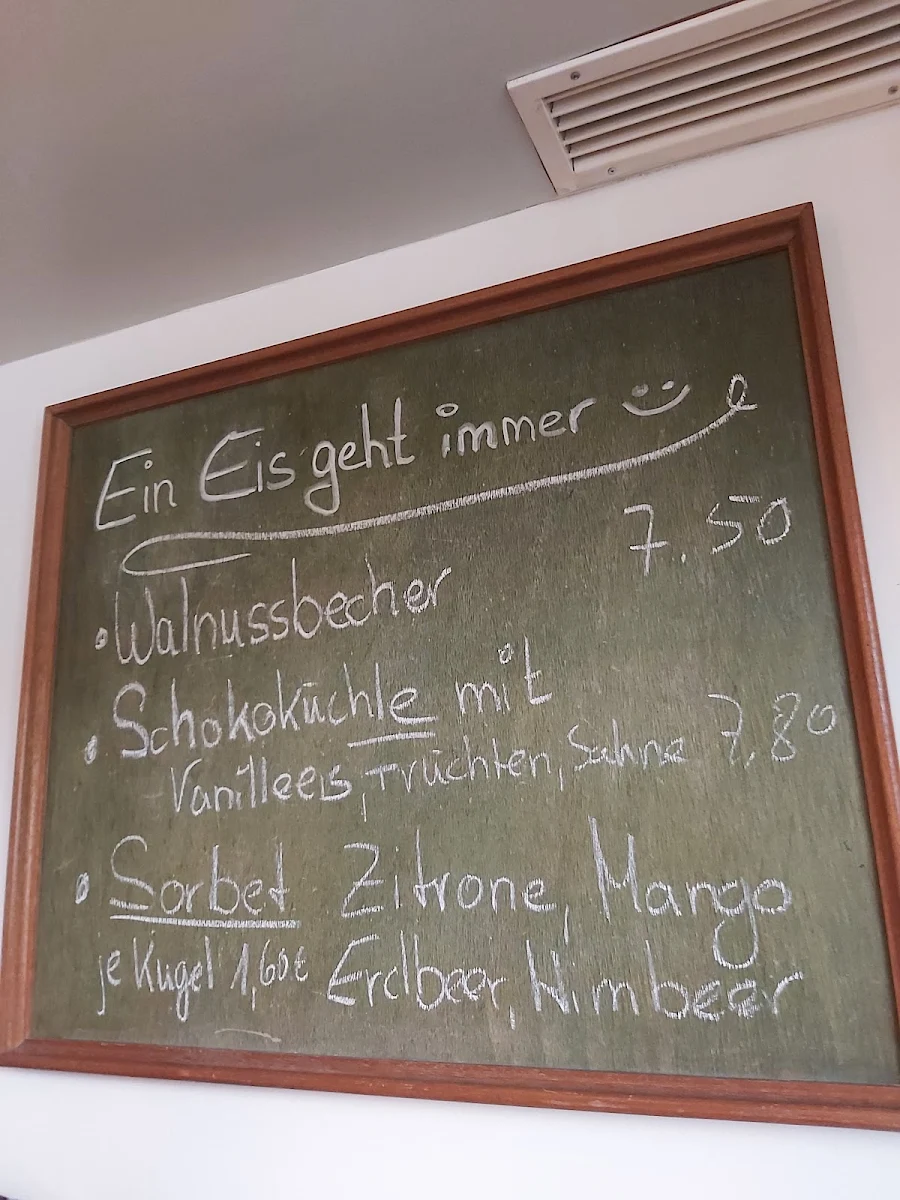 Ein Eis geht immer
Walnussbecher 7.50
Schokoküchle mit
Vanilleeis, Früchten, Sahne 7,80
Sorbet Zitrone, Mango
je Kugel 1,60€ Erdbeer, Himbeer